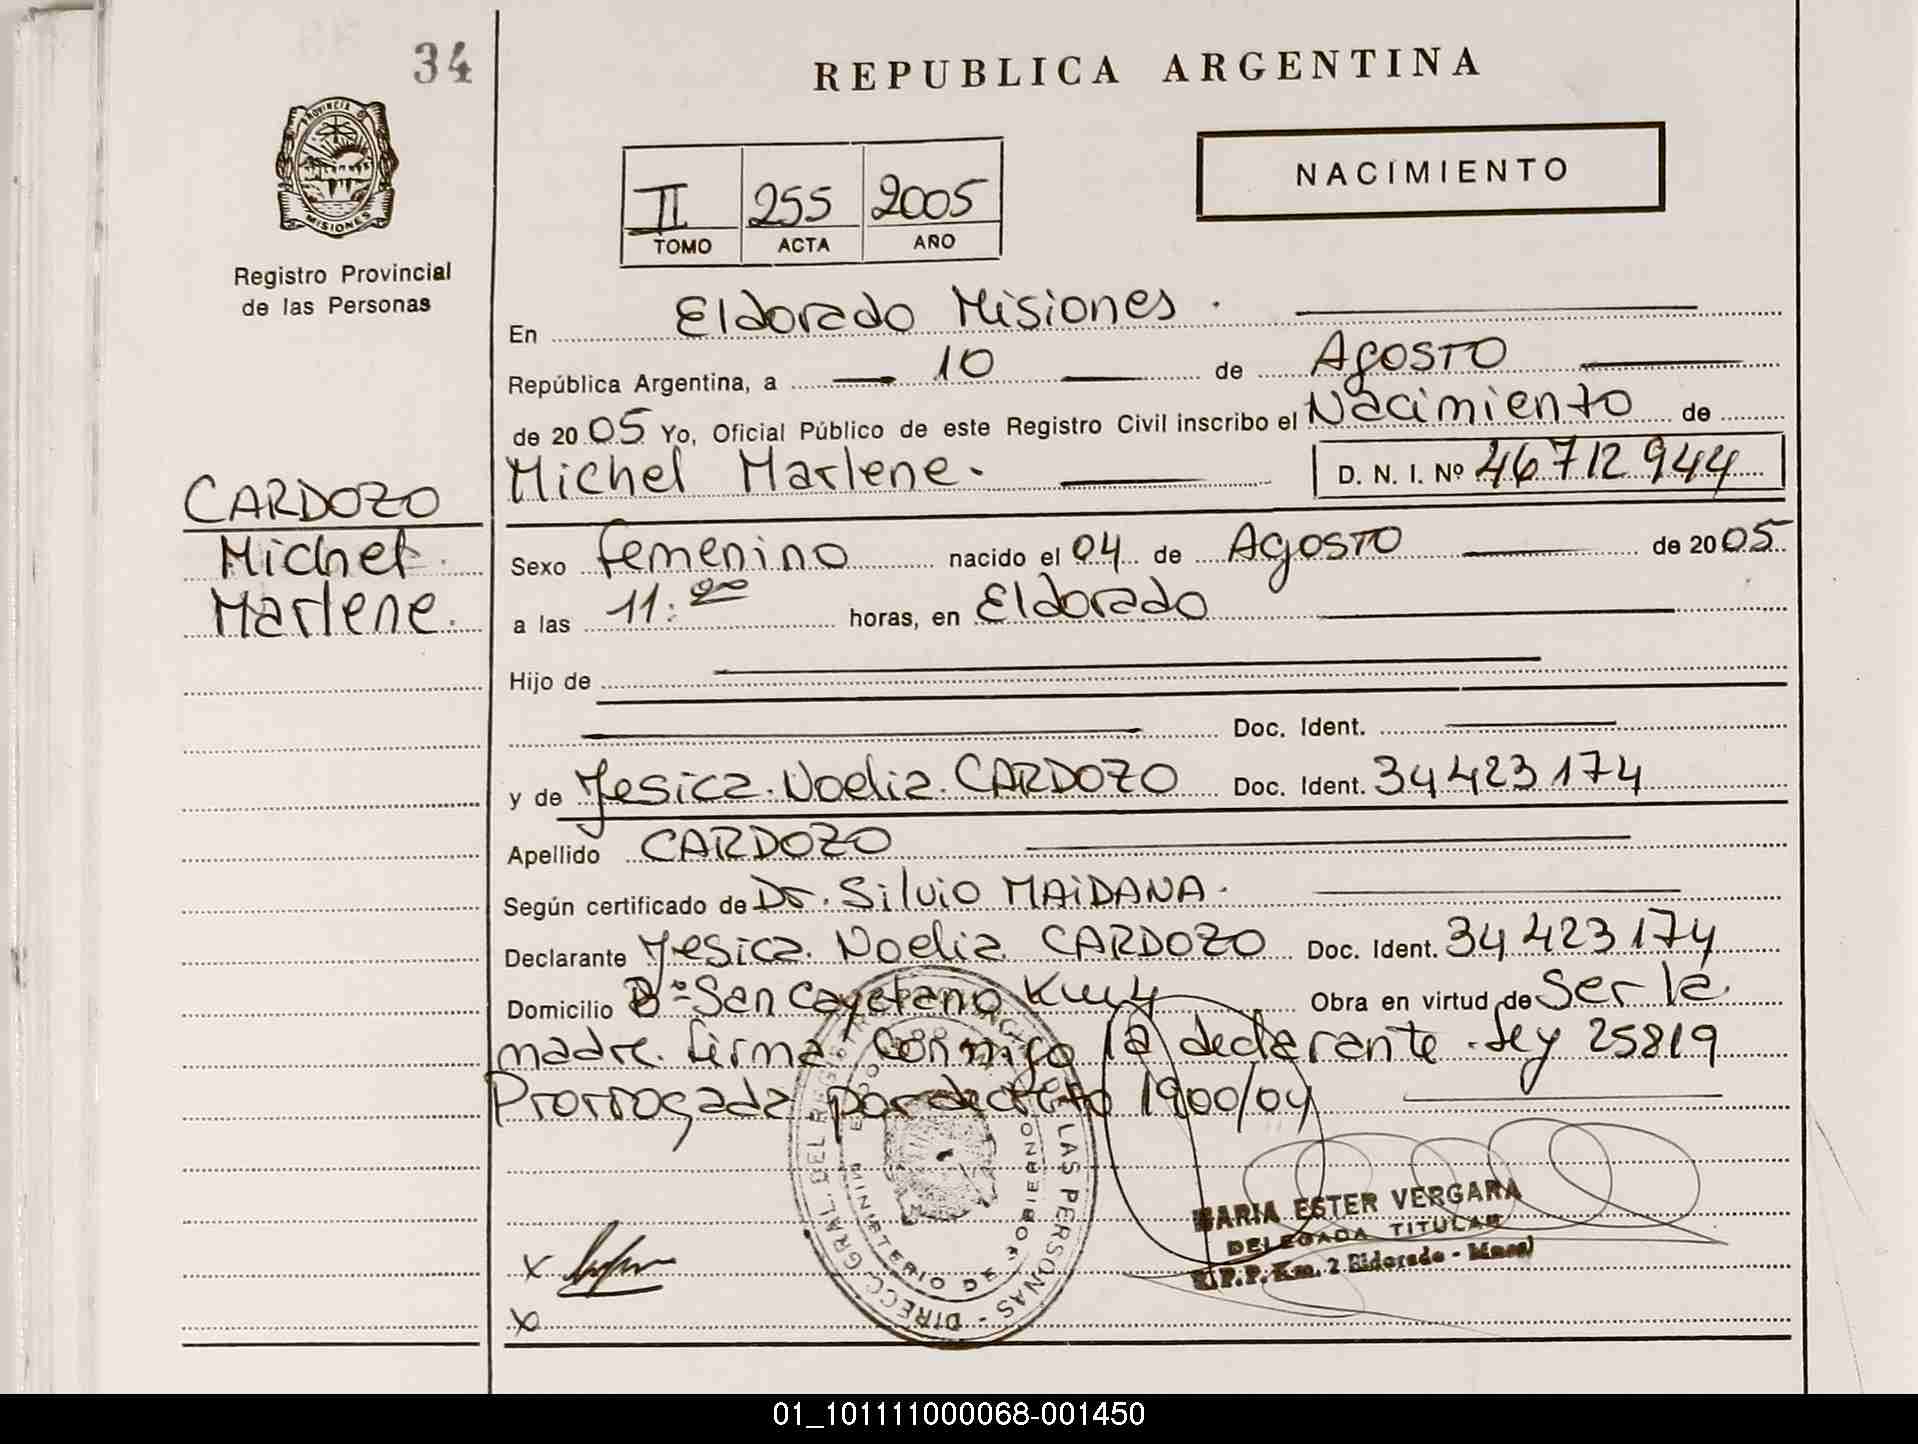 34
REPUBLICA ARGENTINA
NACIMIENTO
PROVINCIA D
MISIONES
Registro Provincial
de las Personas
II 255 2005
TOMO ACTA AÑO
En Eldorado Misiones.
República Argentina, a 10 de Agosto
de 20 05 Yo, Oficial Público de este Registro Civil inscribo el Nacimiento de
Michel Marlene. D. N. I. Nº 46712944
CARDOZO
Michel.
Marlene.
Sexo femenino nacido el 04 de Agosto de 20 05
a las 11:20 horas, en Eldorado
Hijo de
Doc. Ident.
y de Yesica. Noelia. CARDOZO Doc. Ident. 34423174
Apellido CARDOZO
Según certificado de Dr. Silvio MAIDANA.
Declarante Yesica. Noelia CARDOZO Doc. Ident. 34 423 174
Domicilio Bº San Cayetano Obra en virtud de Ser la
madre. firma conmigo la declarante. Ley 25819
Prorrogada por decreto 1900/04
DIRECC. GRAL. DEL REGISTRO DE LAS PERSONAS
MINISTERIO DE GOBIERNO
MARIA ESTER VERGARA
DELEGADA TITULAR
R.P.P. Km. 2 Eldorado - Mnes)
X
X
01_101111000068-001450